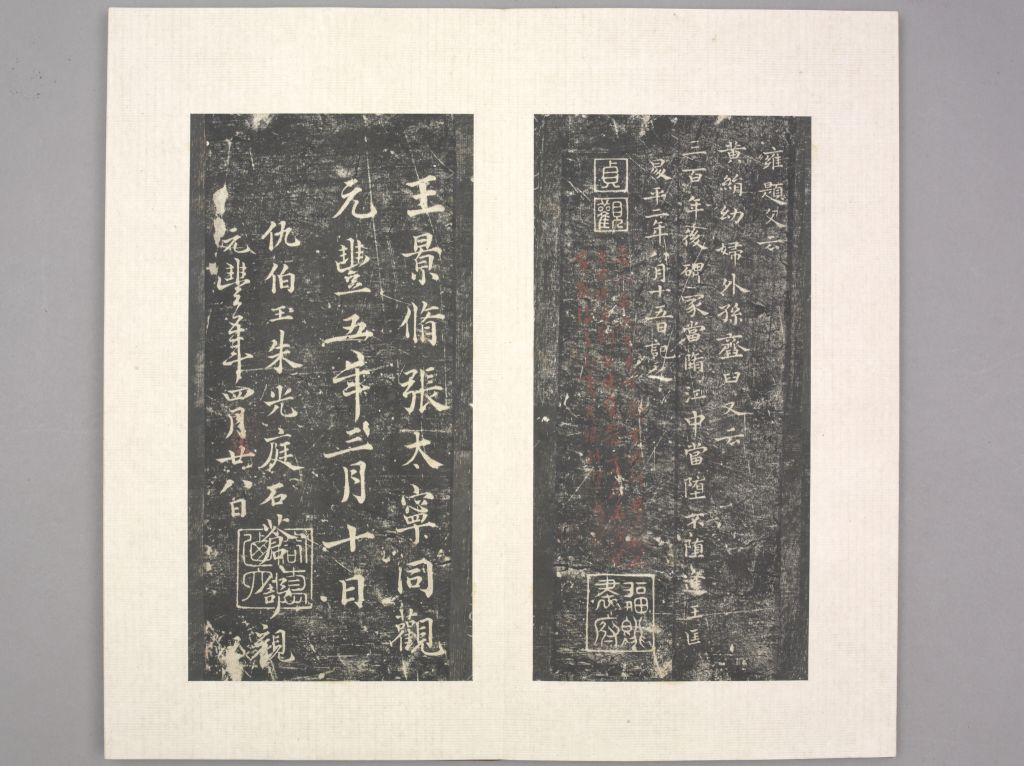 雍題文云
黃絹幼婦外孫齏臼又云
三百年後碑冢當墮江中當墮不墮逢王匡
昇平二年八月十五日記之
貞觀
王景脩張太寧同觀
元豐五年三月十日
仇伯玉朱光庭石蒼舒觀
元豐年四月廿八日